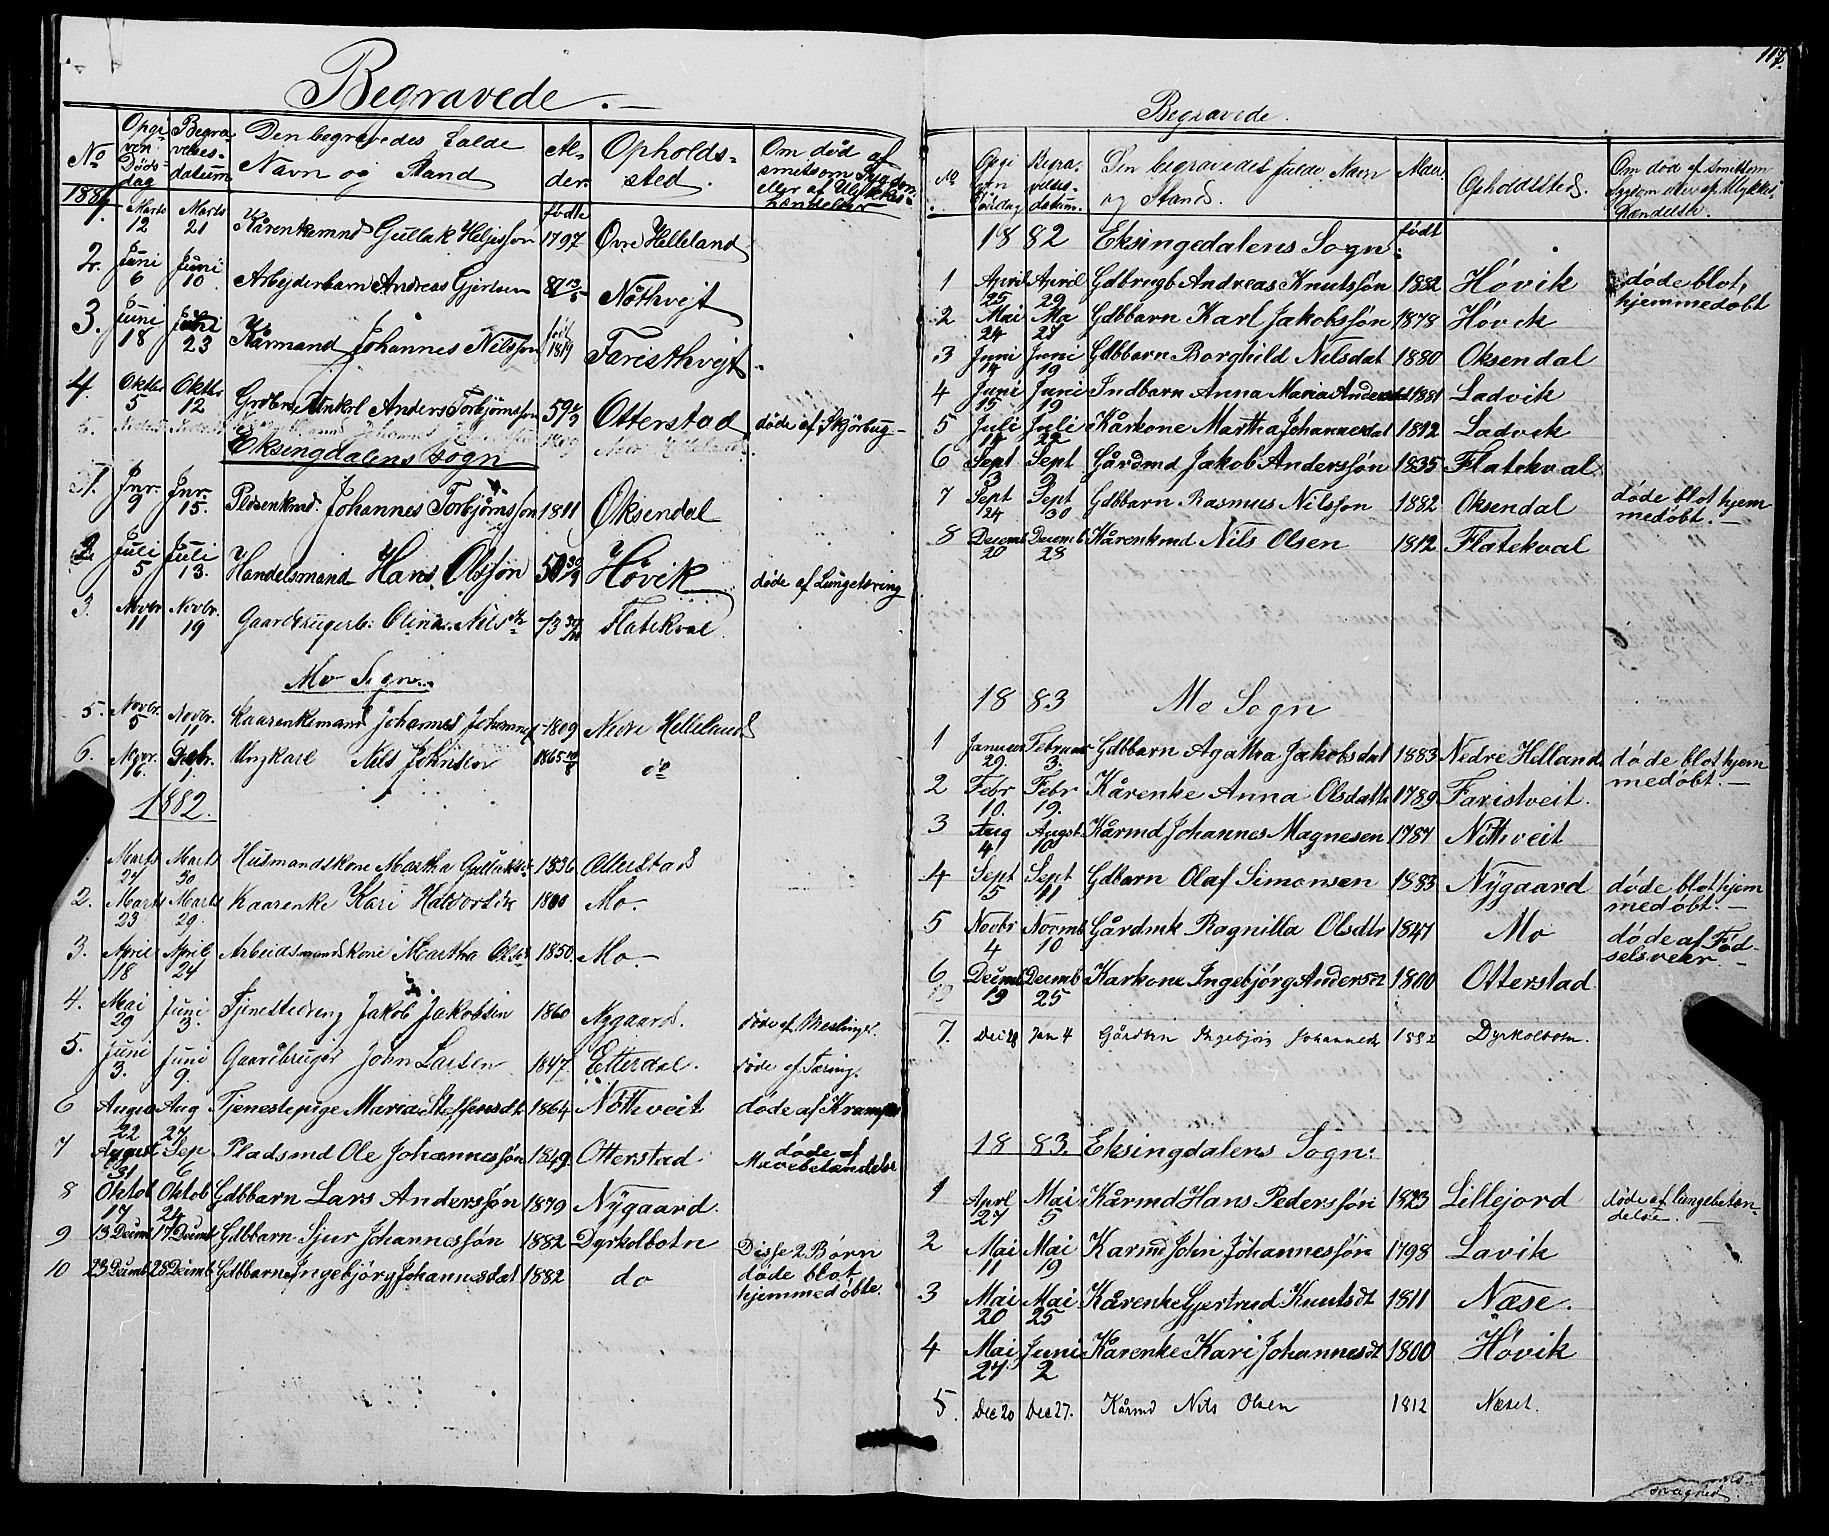 117.
Begravede.
No Opgiven Dødsdag Begravelsesdatum Den begravedes fulde Navn og Stand Alder Opholdssted. Om død af smitsom Sygdom eller af Ulykkeshændelse
1881 fødte
1. Marts 12 Marts 21 Kårenkemnd Gullak Heljesson 1797 Øvre Helleland
2. Juni 6 Juni 10 Arbejderbarn Andreas Gjertsen Nøthvejt
3. Juni 18 Juni 23 Kårmand Johannes Nilsson født 1819 Faresthvejt
4. Oktbr 5 Oktbr 12 Anders Torbjørnsson 59 Otterstad døde af Skjørbug
Eksingdalens sogn
1. Jnr. 9 Jnr. 15. Johannes Torbjørnsson 1811 Oksendal
2 Juli 5 Juli 13. Handelsmand Hans Olsson 50 Høvik døde af Lungetæring
3. Novbr 11 Novbr. 19 Olina Nilsdtr 73 Flatekval
Mo Sogn
5. Novbr. 5 Novbr. 11 Kaarenkemand Johannes 1809 Nedre Helleland
6. Novr. 16. Debr. 1. Ungkarl Nils Johnsen 1865 do
1882.
Marts 27 Marts 30 Husmandskone Martha 1836 Otterstad
2. Marts 23 Marts 29. Kaarenke Kari Halvorsdtr 1800 Mo.
3. April 18 April 24 Arbeidsmandskone Martha Olsdt 1850 Mo.
4. Mai 29 Juni 3. Tjenestedreng Jakob Jakobsen 1860 Nygaard. døde af Meslinger.
5. Juni 3. Juni 9. Gaardbruger John Larsen 1847. Etterdal. døde af Tæring.
6 August 22 Aug 27 Tjenestepige Maria Steffensdt 1864 Nöthveit døde af Krampe
7 August 31 Sep 6 Pladsmd Ole Johannessøn 1849 Otterstad døde af Mavebetændelse
8 Oktob 17 Oktob 24 Gdbbarn Lars Anderssøn 1879 Nygaard.
9 13 Decmb 17 Decmb Gdbbarn Sjur Johannessøn 1882 Dyrkolbotn Disse 2 Børn
10 23 Decmb 28 Decmb Gdbbarn Ingebjörg Johannesdat 1882 do døde blot hjemmedøbte.
Begravede.
No Opgiven Dødsdag Begravelsesdatum. Den begravedes fulde Navn og Stand. Alder Opholdssted. Om døde af smittsom Sygdom eller af Ulykkeshændelse.
1882 Eksingedalens Sogn. født
1 April 25 April 29 Gdbrugb Andreas Knutssøn 1882 Høvik døde blot, hjemmedøbt
2 Mai 24 Ma 27 Gdbbarn Karl Jakobssøn 1878 Høvik
3 Juni 14 Juni 19 Gdbbarn Borghild Nilsdat 1880 Oksendal
4 Juni 15 Juni 19 Indbarn Anna Maria Andersd 1881 Ladvik
5 Juli 14 Juli 22 Kårkone Martha Johannesdat 1812 Ladvik
6 Sept 3 Sept 9 Gårdmd Jakob Anderssøn 1835 Flatekval
7 Sept 24 Sept 30 Gdbbarn Rasmus Nilsson 1882 Oksendal døde blot hjemmedøbt.
8 Decemb 20 Decemb 28 Kårenkmd Nils Olsen 1812 Flatekval
1883 Mo Sogn
1 Januar 29. Februar 3. Gdbbarn Agatha Jakobsdat 1883 Nedre Helland. døde blot hjemmedøbt.
2 Febr 10. Febr 19. Kårenke Anna Olsdattr 1789 Faristveit.
3 Aug 4 Augst. 10 Kårmd Johannes Magnesen 1787 Nöthveit
4 Sept 5 Sept 11 Gdbarn Olaf Simonsen 1883 Nÿgaard døde blot hjemmedøbt.
5 Novbr 4 Novmb 10 Gårdmk Ragnilla Olsdtr 1847 Mo døde af Fødselsveer
6 Decmb 19 Decmb 25 Karkone Ingebjörg Andersdt 1800 Otterstad
7. Dec 28 Jan 4 Gårdbrn Ingebjörg Johannesdt 1882 Dyrkolbotn.
1883. Eksingdalens Sogn:
1 Aprl 27 Mai 5 Kårmd Hans Pederssøn 1823 Lillejord døde af lungebetændelse.
2 Mai 11 Mai 19 Karmd John Jöhannessön 1798 Lavik
3 Mai 20 Mai 25 Kårenke Gjertrud Knutsdt 1811 Næse.
4 Mai 27 Juni 2 Kårenke Kari Johannesdt 1800 Høvik
5. Dec 20 Dec 27. Kårmd Nils Olsen 1812 Næset.